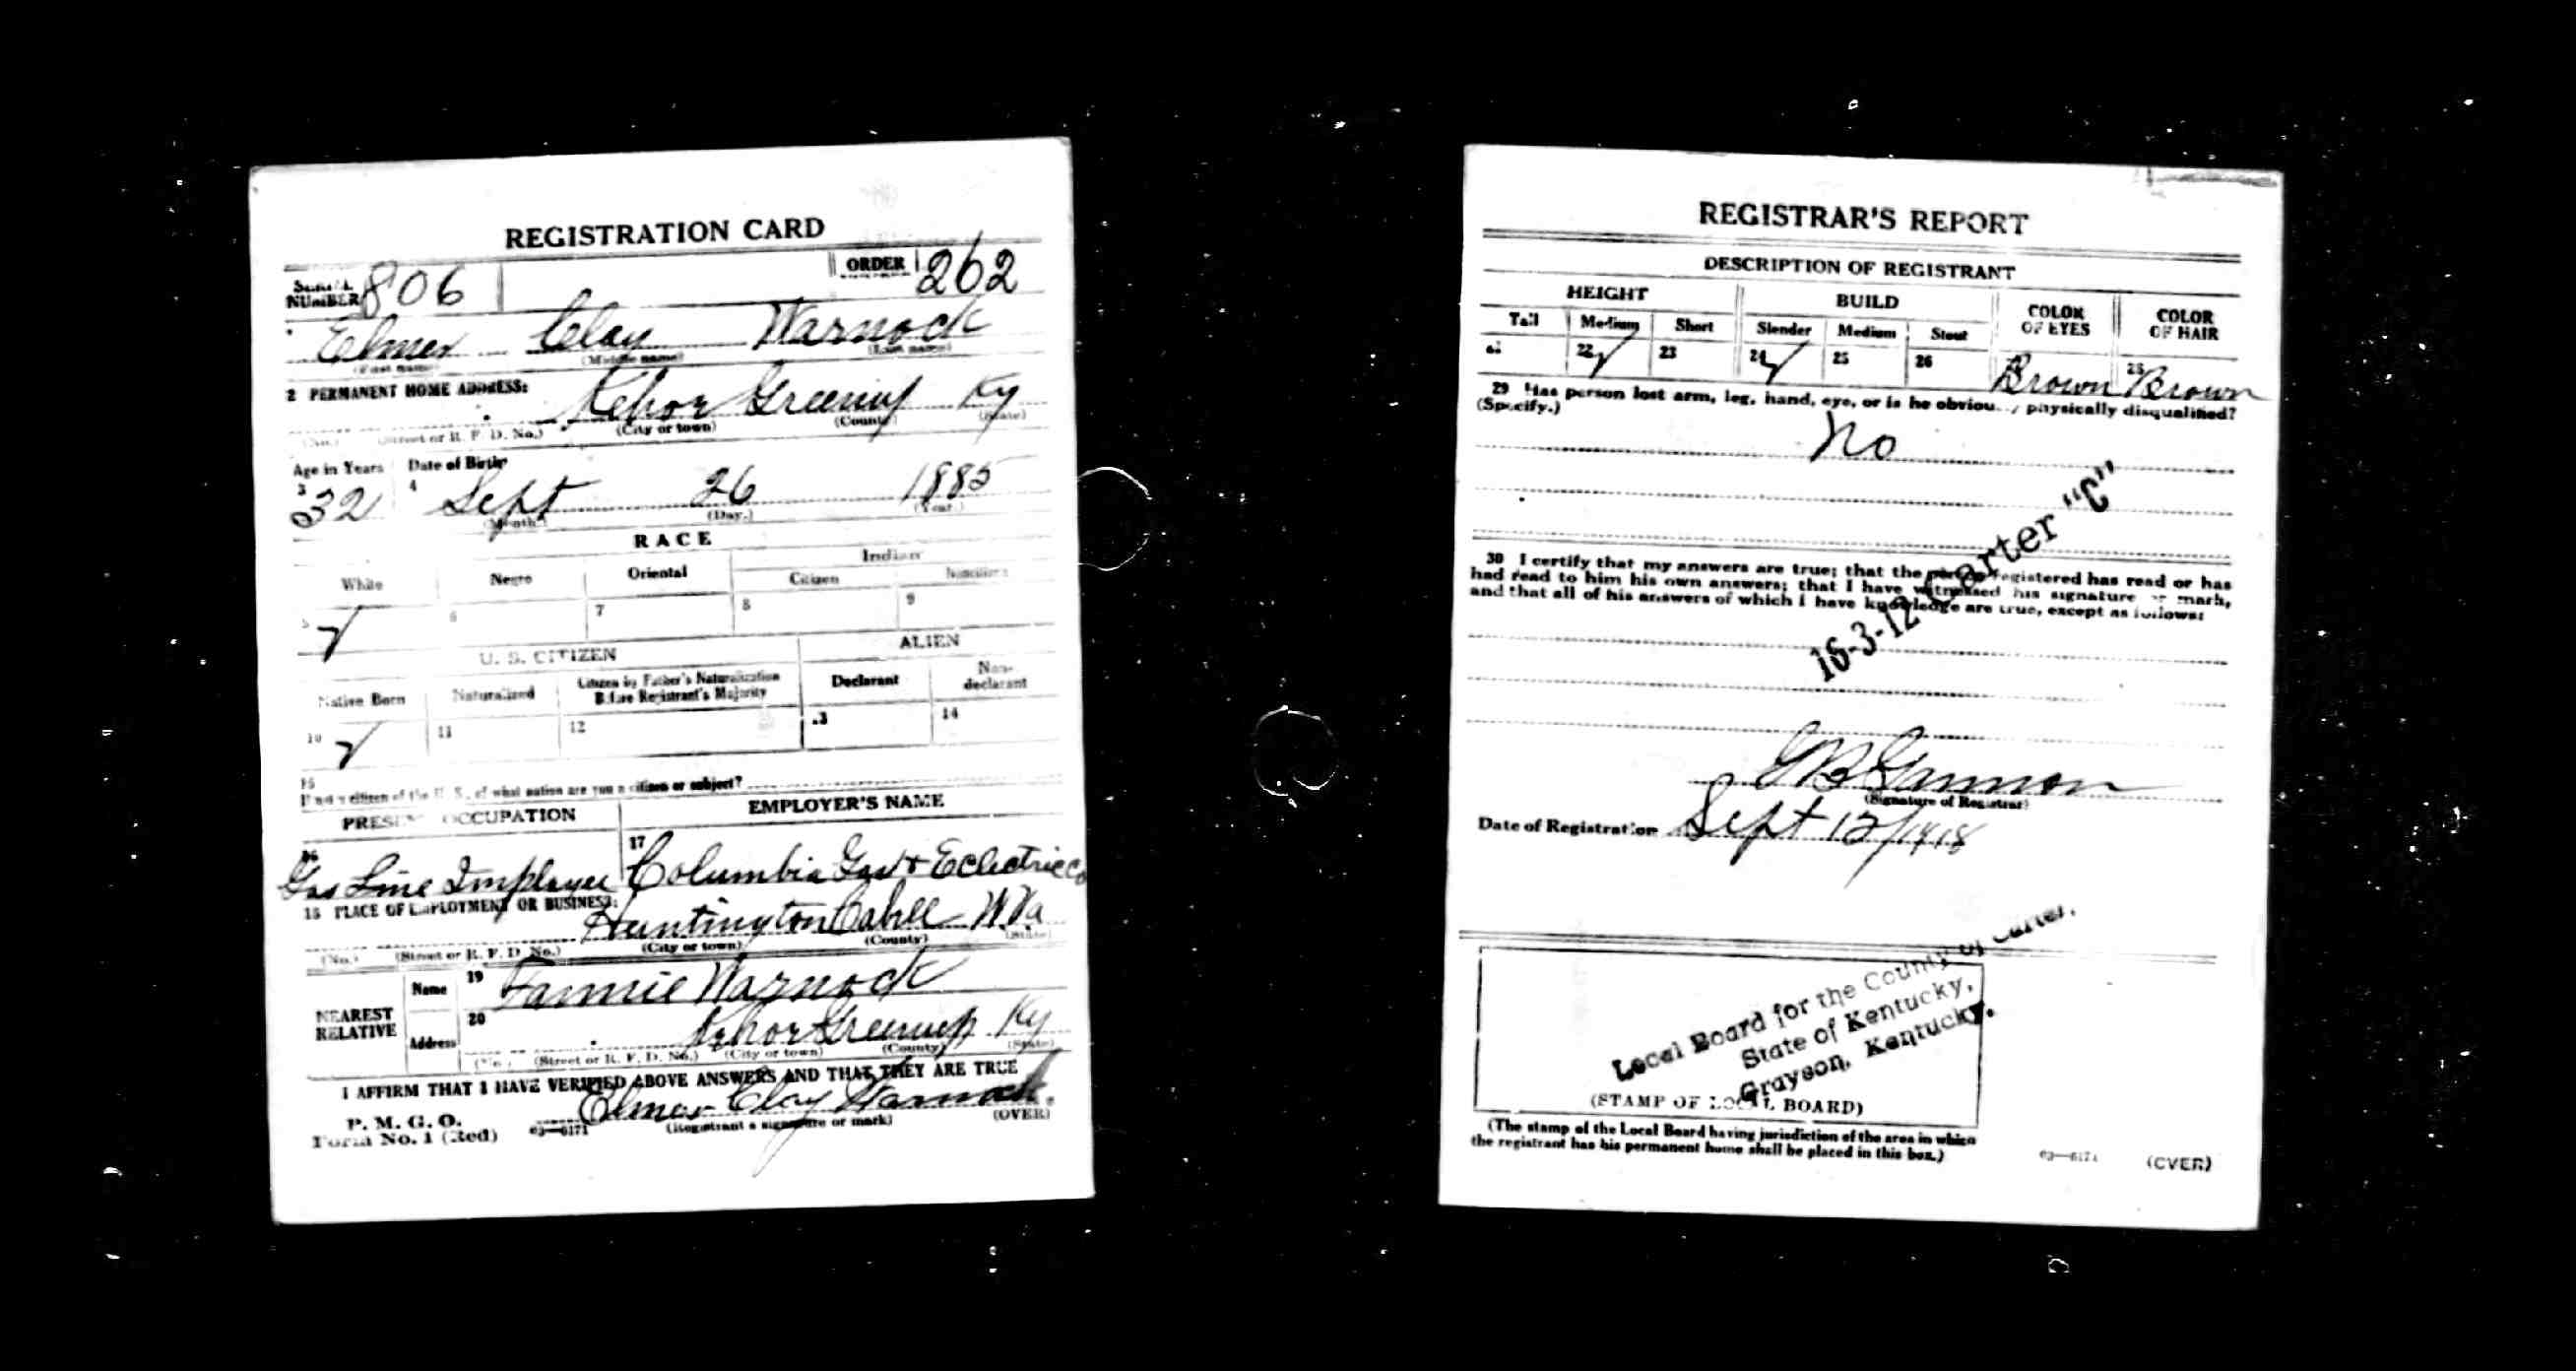 REGISTRATION CARD
SERIAL NUMBER 806 ORDER 262
Elmer Clay Warnock
(First name) (Middle name) (Last name)
2 PERMANENT HOME ADDRESS:
Kehor Greenup Ky
(No.) (Street or R. F. D. No.) (City or town) (County) (State)
Age in Years Date of Birth
3 32 4 Sept 26 1885
(Month) (Day.) (Year.)
RACE
White Negro Oriental Indian
Citizen Noncitizen
5 ✓ 6 7 8 9
U. S. CITIZEN ALIEN
Native Born Naturalized Citizen by Father's Naturalization Before Registrant's Majority Declarant Non-declarant
10 ✓ 11 12 13 14
15
If not a citizen of the U. S., of what nation are you a citizen or subject?
PRESENT OCCUPATION EMPLOYER'S NAME
16 17
Gas Line Employee Columbia Gas & Eclectric Co
18 PLACE OF EMPLOYMENT OR BUSINESS:
Huntington Cabell W Va
(No.) (Street or R. F. D. No.) (City or town) (County) (State)
NEAREST RELATIVE
Name 19 Fannie Warnock
Address 20 Kehor Greenup Ky
(No.) (Street or R. F. D. No.) (City or town) (County) (State)
I AFFIRM THAT I HAVE VERIFIED ABOVE ANSWERS AND THAT THEY ARE TRUE
P. M. G. O.
Form No. 1 (Red) 03—6171 Elmer Clay Warnock
(Registrant's signature or mark) (OVER)
REGISTRAR'S REPORT
DESCRIPTION OF REGISTRANT
HEIGHT BUILD COLOR OF EYES COLOR OF HAIR
Tall Medium Short Slender Medium Stout
21 22 ✓ 23 24 ✓ 25 26 Brown 28 Brown
29 Has person lost arm, leg, hand, eye, or is he obviously physically disqualified?
(Specify.)
No
30 I certify that my answers are true; that the person registered has read or has
had read to him his own answers; that I have witnessed his signature or mark,
and that all of his answers of which I have knowledge are true, except as follows:
16-3-12 Carter "C"
G B Gannon
(Signature of Registrar)
Date of Registration Sept 12/1918
Local Board for the County of Carter,
State of Kentucky,
Grayson, Kentucky.
(STAMP OF LOCAL BOARD)
(The stamp of the Local Board having jurisdiction of the area in which
the registrant has his permanent home shall be placed in this box.)
03—6171 (OVER)